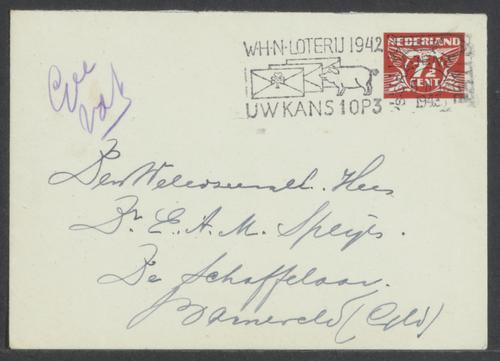 W·H·N·LOTERIJ 1942
UW KANS 1 OP 3
NEDERLAND
7½
CENT
1942
Den Weledelgestr. Heer
Dr. E. A. M. Speijer.
De Schaffelaar.
Barneveld (Gld)